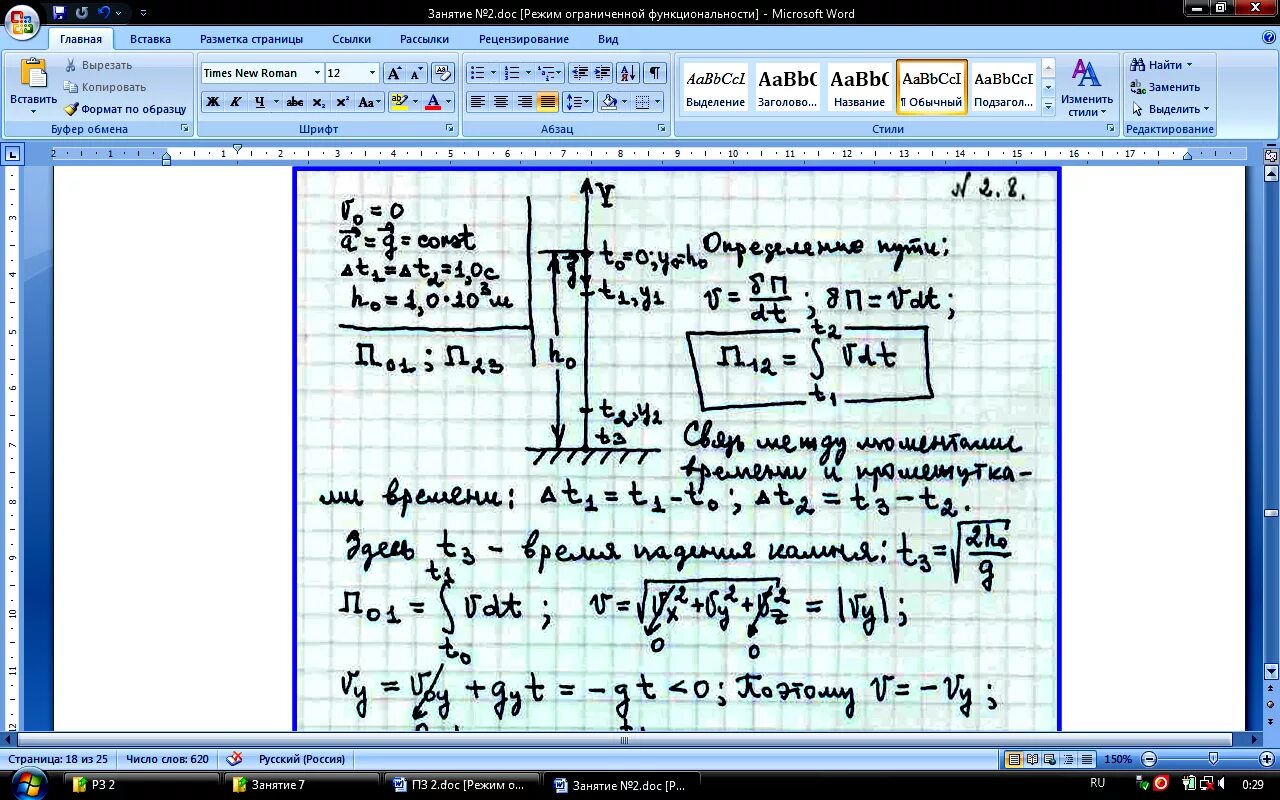 Занятие №2.doc [Режим ограниченной функциональности] - Microsoft Word
Главная Вставка Разметка страницы Ссылки Рассылки Рецензирование Вид
Вставить
Вырезать
Копировать
Формат по образцу
Буфер обмена
Times New Roman 12
Ж К Ч abc x₂ x² Aa
Шрифт
Абзац
AaBbCcI AaBbC AaBbC AaBbCcI AaBbCcI
Выделение Заголово... Название ¶ Обычный Подзагол...
Изменить стили
Стили
Найти
Заменить
Выделить
Редактирование
2 1 1 2 3 4 5 6 7 8 9 10 11 12 13 14 15 16 17
3
4
5
6
7
8
9
10
11
12
N 2.8.
v₀ = 0
a⃗ = g⃗ = const
Δt₁ = Δt₂ = 1,0с
h₀ = 1,0·10³м
П₀₁ ; П₂₃
Y
t₀=0; y₀=h₀
g⃗
t₁, y₁
h₀
t₂, y₂
t₃
Определение пути:
v = δП/dt ; δП = vdt ;
П₁₂ = ∫_{t₁}^{t₂} vdt
Связь между моментами
времени и промежутка-
ми времени: Δt₁ = t₁ - t₀ ; Δt₂ = t₃ - t₂.
Здесь t₃ - время падения камня: t₃ = √(2h₀/g)
П₀₁ = ∫_{t₀}^{t₁} vdt ; v = √(vₓ² + v_y² + v_z²) = |v_y| ;
0 0
v_y = v₀y + g_y t = -gt < 0 ; Поэтому v = -v_y ;
Страница: 18 из 25 Число слов: 620 Русский (Россия) 150%
РЗ 2 Занятие 7 ПЗ 2.doc [Режим о... Занятие №2.doc [Р... RU 0:29